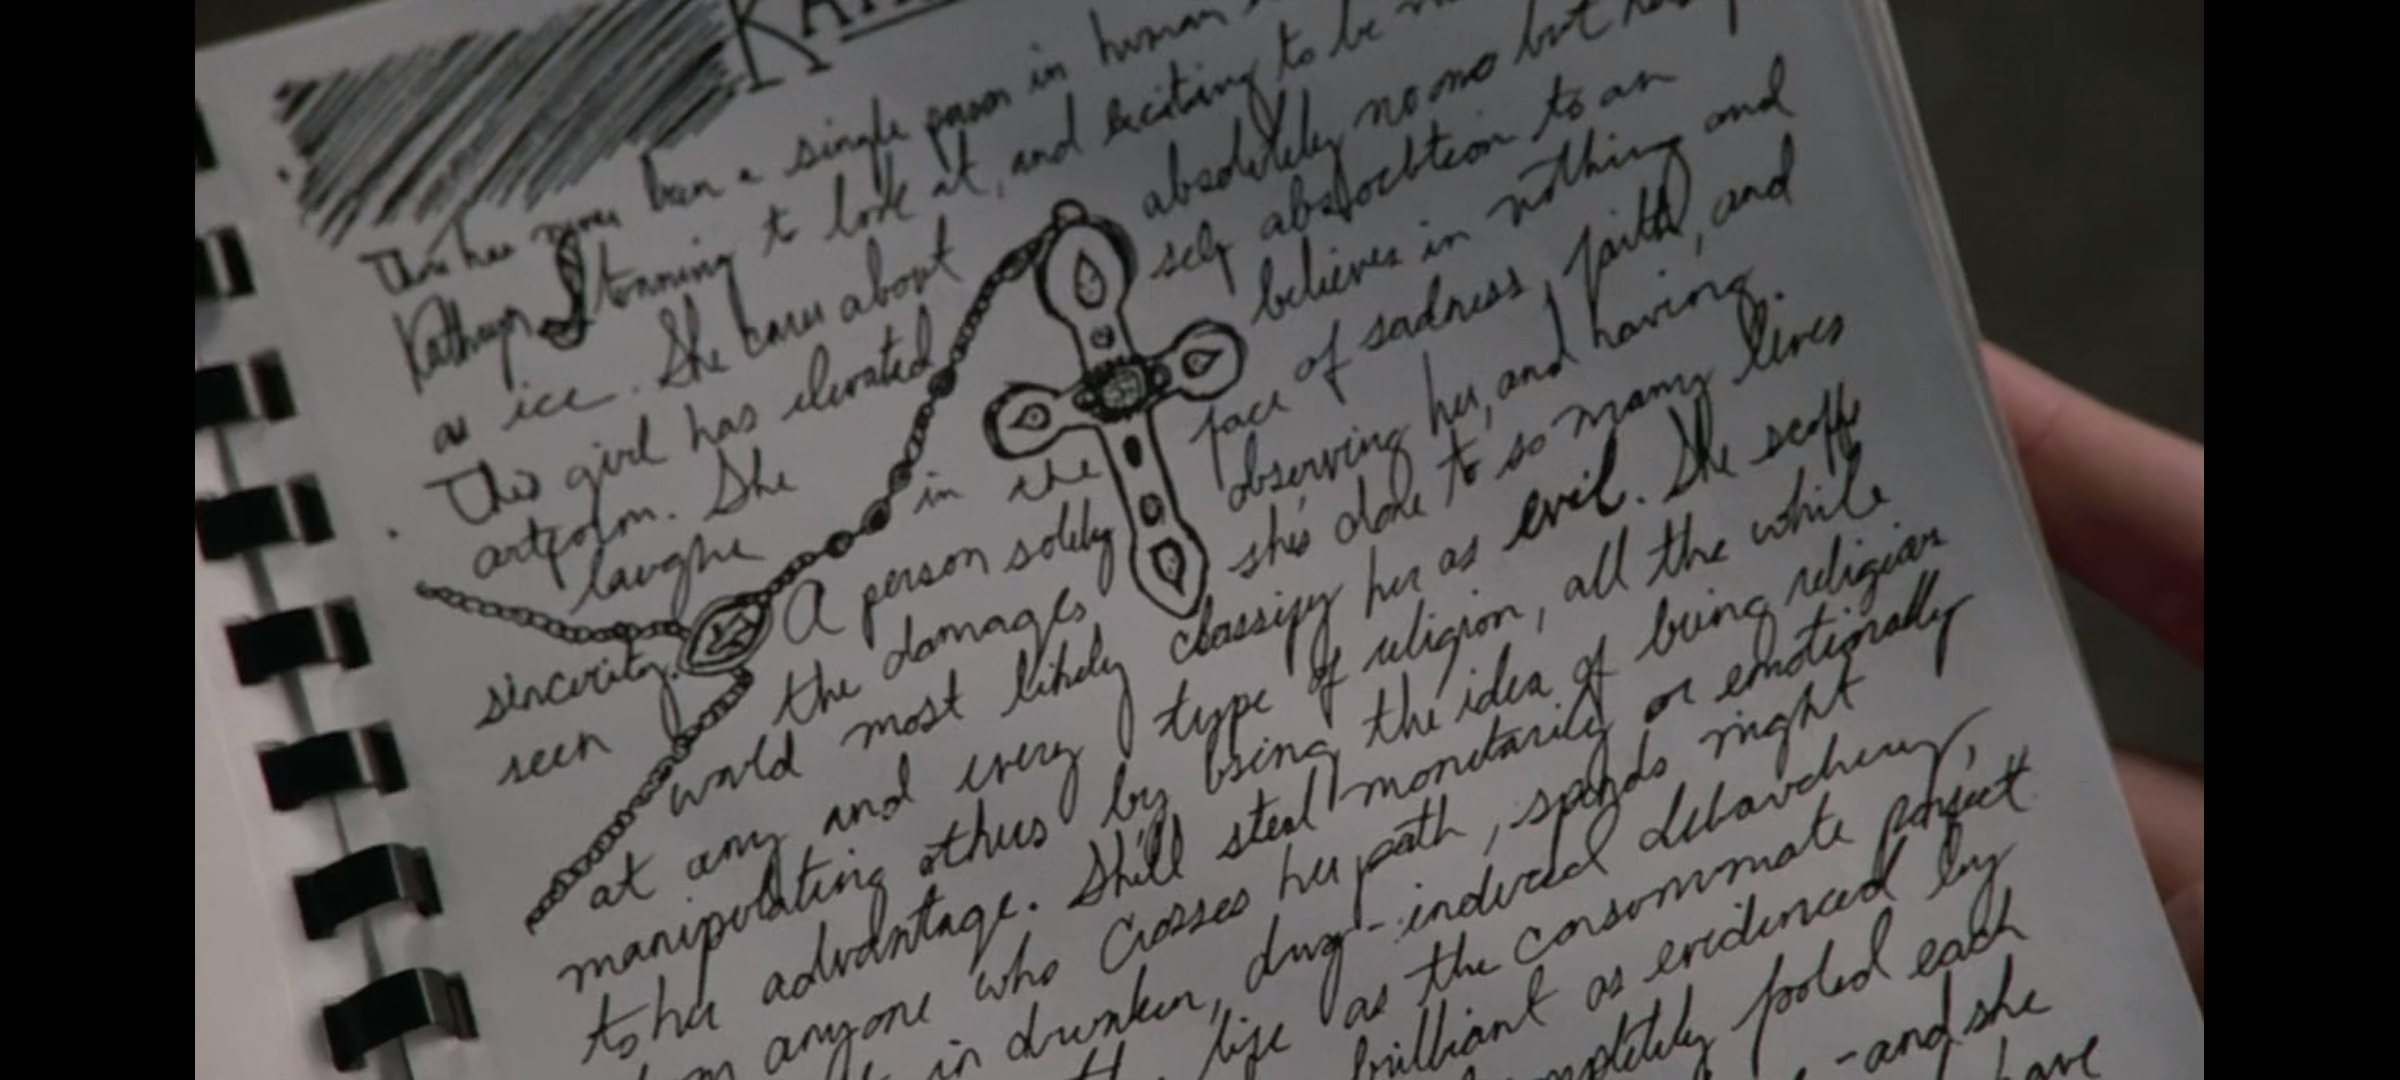 KA
There has never been a single person in human
Kathryn stunning to look at, and exciting to be
as ice. She cares about absolutely no one but
This girl has elevated self absorbtion to an
artform. She believes in nothing and
laughs in the face of sadness, faith, and
sincerity. A person solely observing her, and having
seen the damages she's done to so many lives
would most likely classify her as evil. She scoffs
at any and every type of religion, all the while
manipulating others by using the idea of being religious
to her advantage. She'll steal monetarily or emotionally
anyone who crosses her path, spends night
in drunken, drug-induced debauchery,
life as the consummate
brilliant as evidenced by
fooled each
-and she
have